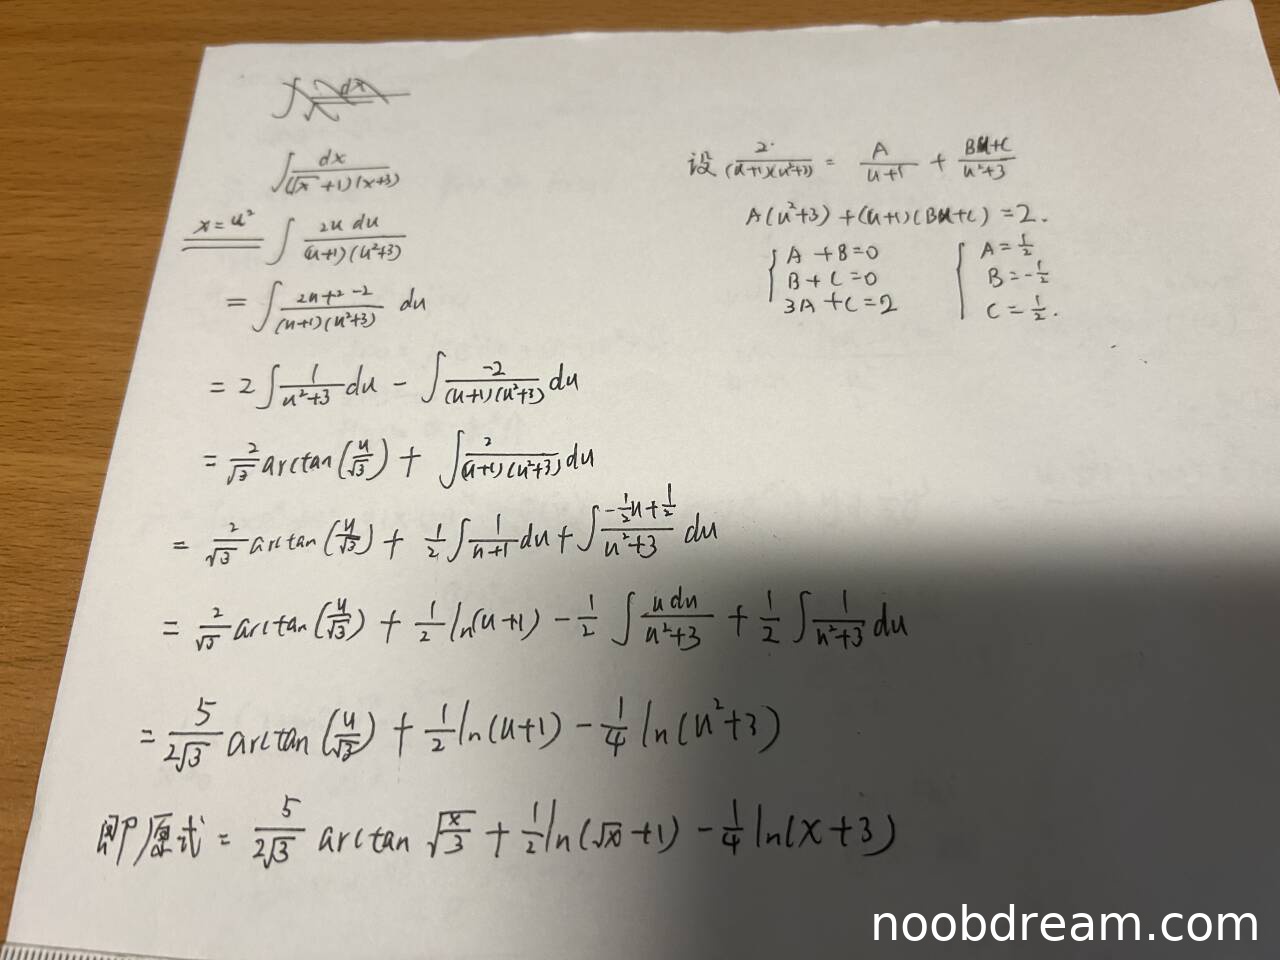 ∫ dx / ((√x + 1)(x+3))
x = u² ∫ 2u du / ((u+1)(u²+3))
= ∫ (2u+2-2) / ((u+1)(u²+3)) du
= 2 ∫ 1/(u²+3) du - ∫ -2/((u+1)(u²+3)) du
= 2/√3 arctan(u/√3) + ∫ 2/((u+1)(u²+3)) du
= 2/√3 arctan(u/√3) + 1/2 ∫ 1/(u+1) du + ∫ (-1/2 u + 1/2)/(u²+3) du
= 2/√3 arctan(u/√3) + 1/2 ln(u+1) - 1/2 ∫ u du/(u²+3) + 1/2 ∫ 1/(u²+3) du
= 5/(2√3) arctan(u/√3) + 1/2 ln(u+1) - 1/4 ln(u²+3)
即原式 = 5/(2√3) arctan √(x/3) + 1/2 ln(√x+1) - 1/4 ln(x+3)
设 2/((u+1)(u²+3)) = A/(u+1) + (Bu+C)/(u²+3)
A(u²+3) + (u+1)(Bu+C) = 2.
{ A + B = 0 { A = 1/2
B + C = 0 B = -1/2
3A + C = 2 C = 1/2.
noobdream.com